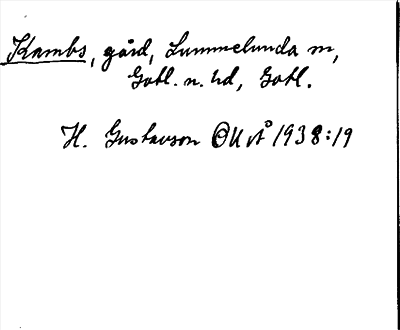 Kambs, gård, Lummelunda sn,
Gotl. n. hd, Gotl.
H. Gustavson OUÅ 1938:19